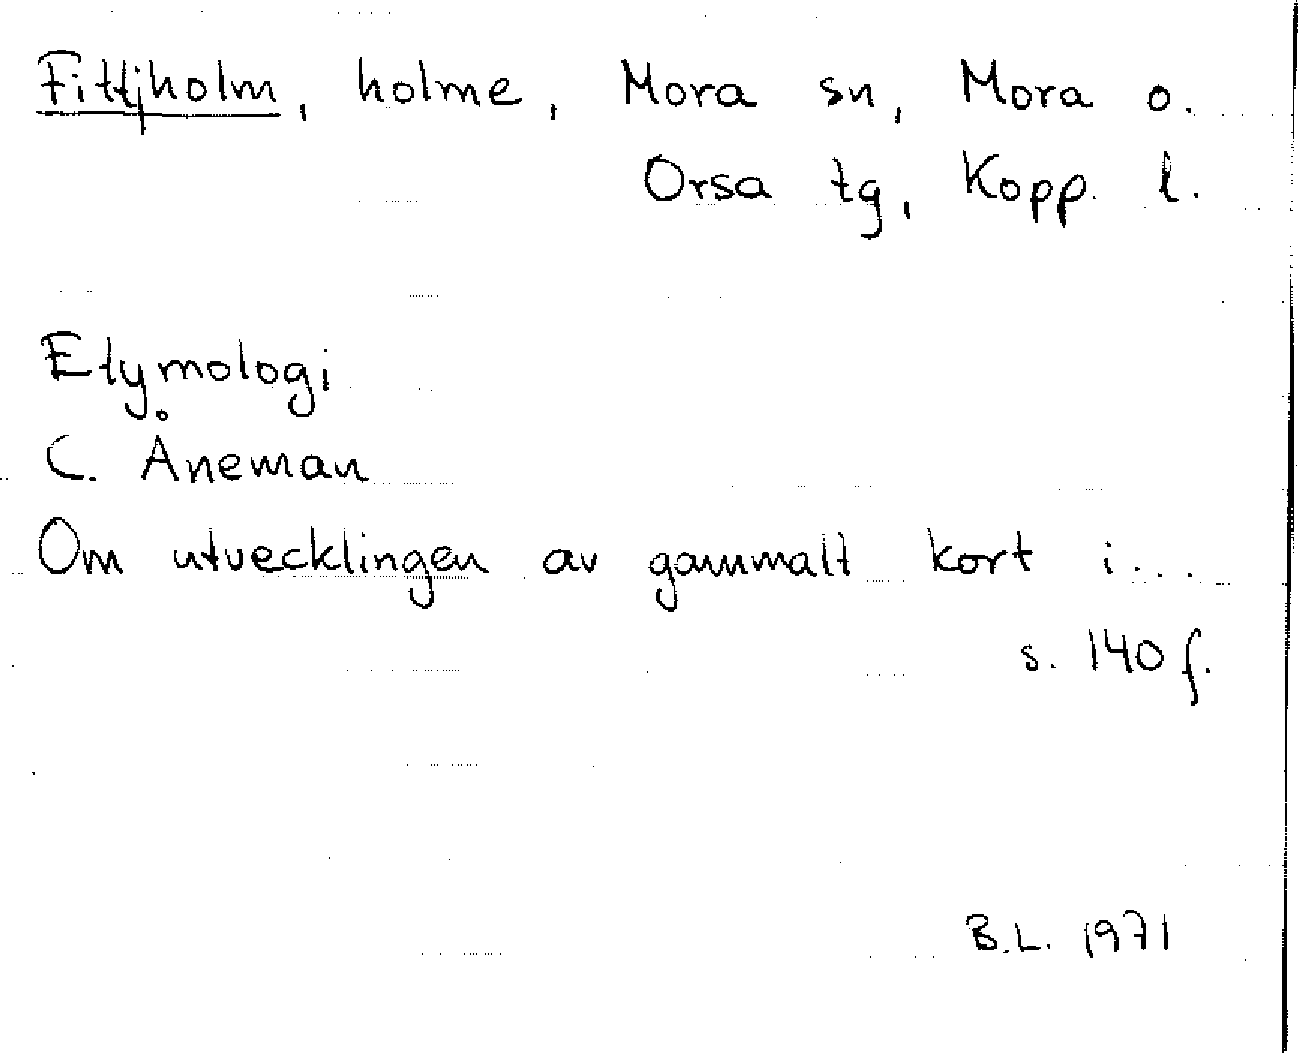 Fittjholm, holme, Mora sn, Mora o.
Orsa tg, Kopp. l.
Etymologi
C. Åneman
Om utvecklingen av gammalt kort i...
s. 140 f.
B.L. 1971